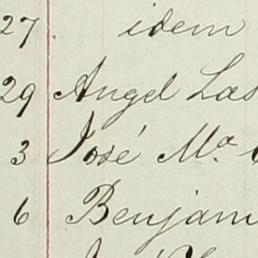 27. idem
29 Angel Las
3 José Mª
6 Benjam